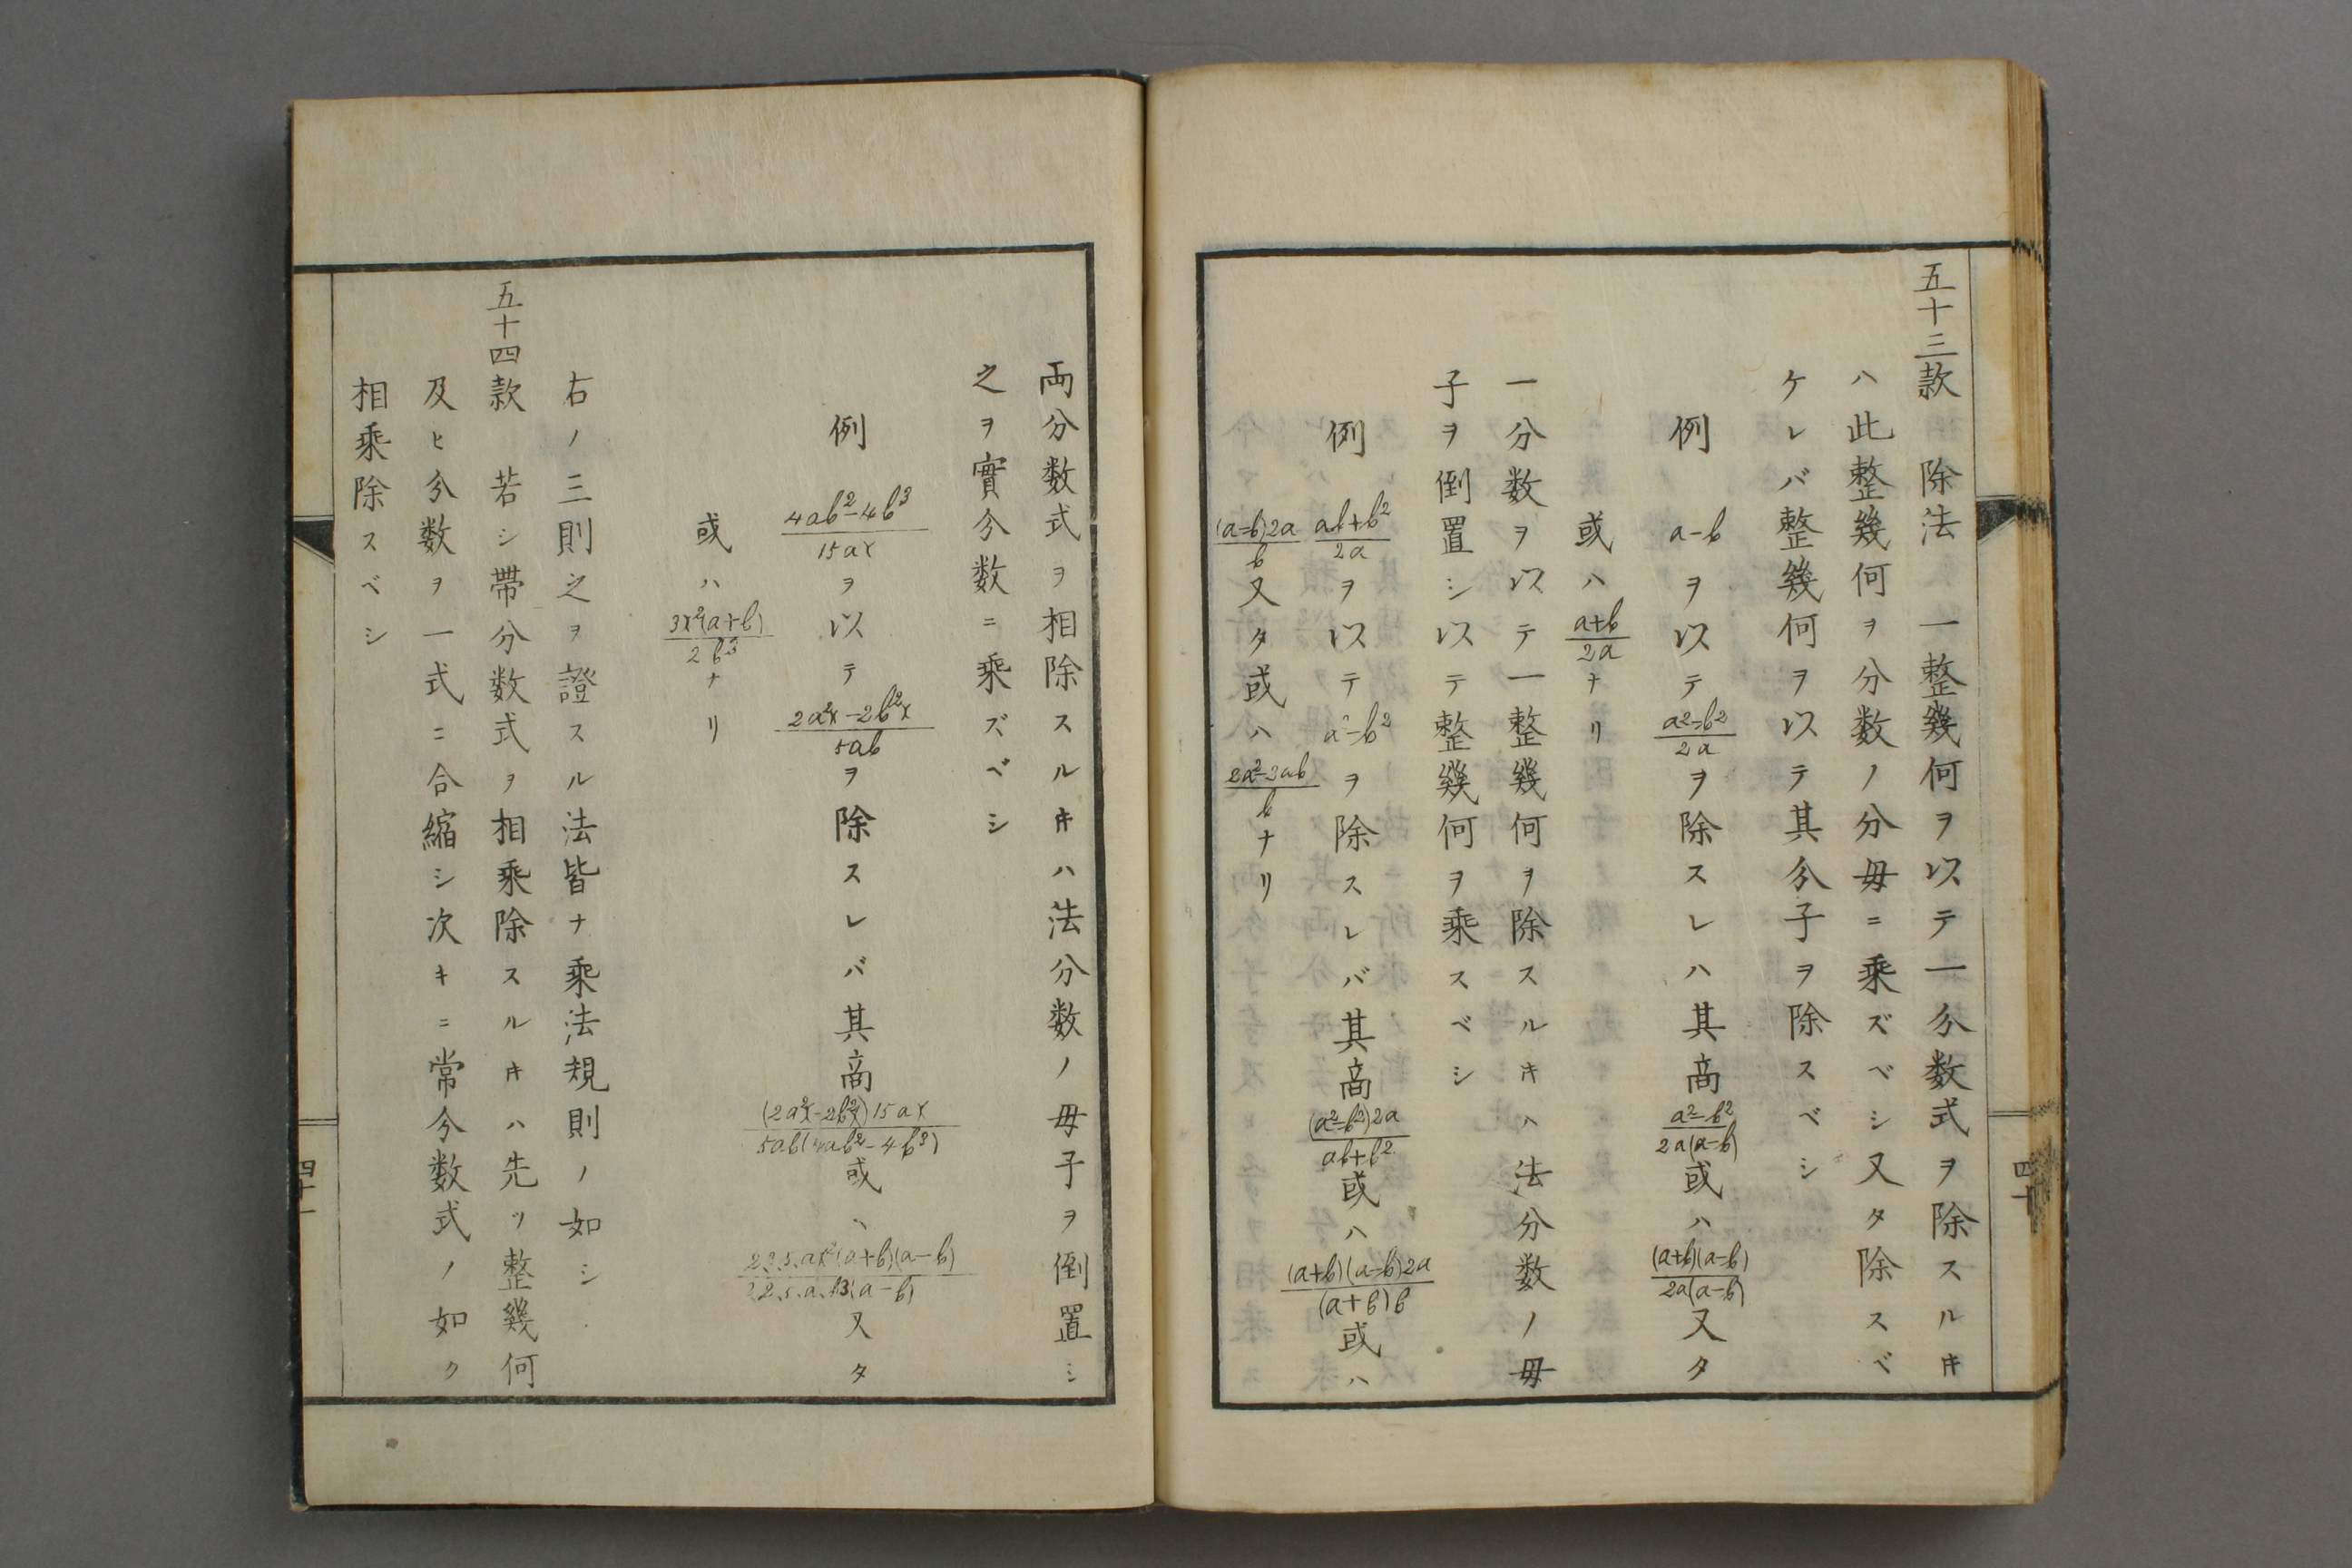 五十三款　除法　一整幾何ヲ以テ一分数式ヲ除スルキ
ハ此整幾何ヲ分数ノ分毋ニ乘ズベシ又タ除スベ
ケレバ整幾何ヲ以テ其分子ヲ除スベシ
例　a-b ヲ以テ (a²-b²)/(2a) ヲ除スレハ其商 (a²-b²)/(2a(a-b)) 或ハ ((a+b)(a-b))/(2a(a-b)) 又タ
或ハ (a+b)/(2a) ナリ
一分数ヲ以テ一整幾何ヲ除スルキハ法分数ノ毋
子ヲ倒置シ以テ整幾何ヲ乘スベシ
例 (ab+b²)/(2a) ヲ以テ a²-b² ヲ除スレバ其商 ((a²-b²)2a)/(ab+b²) 或ハ ((a+b)(a-b)2a)/((a+b)b) 或ハ
((a-b)2a)/b 又タ或ハ (2a²-2ab)/b ナリ
四十
両分数式ヲ相除スルキハ法分数ノ毋子ヲ倒置シ
之ヲ實分数ニ乘ズベシ
例 (4ab²-4b³)/(15ax) ヲ以テ (2a²x-2b²x)/(5ab) ヲ除スレバ其商 ((2a²x-2b²x)15ax)/(5ab(4ab²-4b³)) 或ハ (2.3.5.ax²(a+b)(a-b))/(2.2.5.a.b³(a-b)) 又タ
或ハ (3x²(a+b))/(2b³) ナリ
右ノ三則之ヲ證スル法皆ナ乘法規則ノ如シ
五十四款　若シ帶分数式ヲ相乘除スルキハ先ツ整幾何
及ヒ分数ヲ一式ニ合縮シ次キニ常分数式ノ如ク
相乘除スベシ
四十一